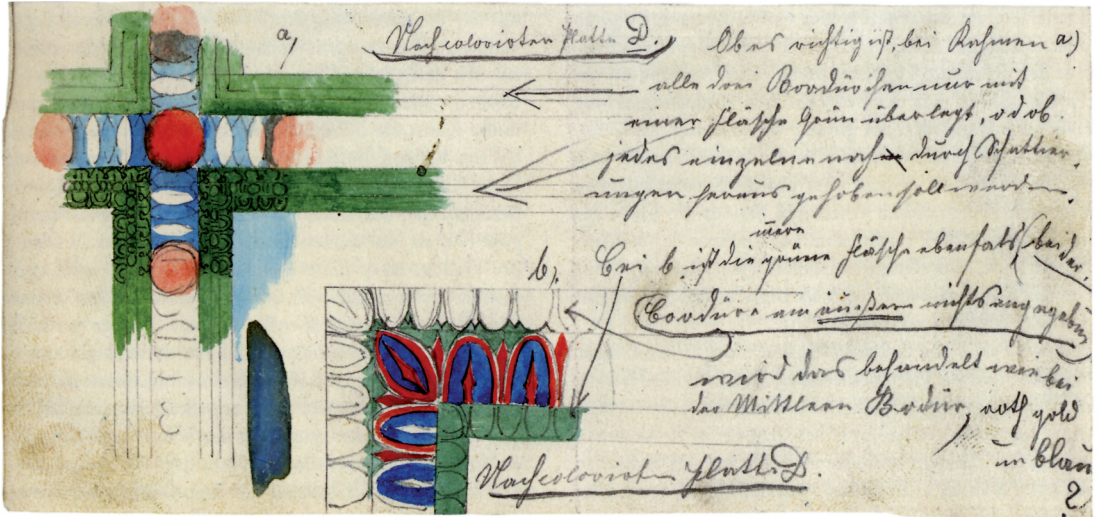 a,
Nachcolorirter Platte D.
Ob es richtig ist, bei Rahmen a)
alle drei Bordürchen nur mit
einer Fläche Grün überlegt, od ob
jedes einzelne noch durch Schattier-
ungen heraus gehoben soll werden.
b,
Bei b ist die innere grüne Fläche ebenfals, bei der
Bordüre am äußern nichts angegeben
wird das behandelt wie bei
der Mittlern Bordür, roth gold
un blau
?
Nachcolorirten Platte D.